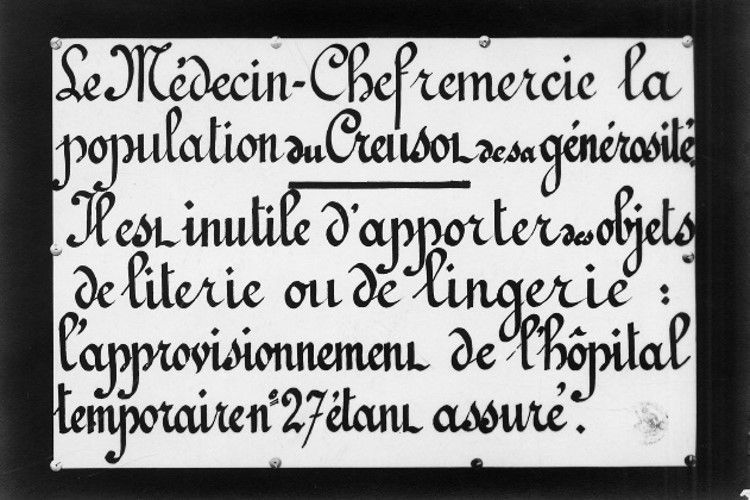 Le Médecin-Chef remercie la
population du Creusot de sa générosité.
Il est inutile d'apporter des objets
de literie ou de lingerie :
l'approvisionnement de l'hôpital
temporaire nº 27 étant assuré.